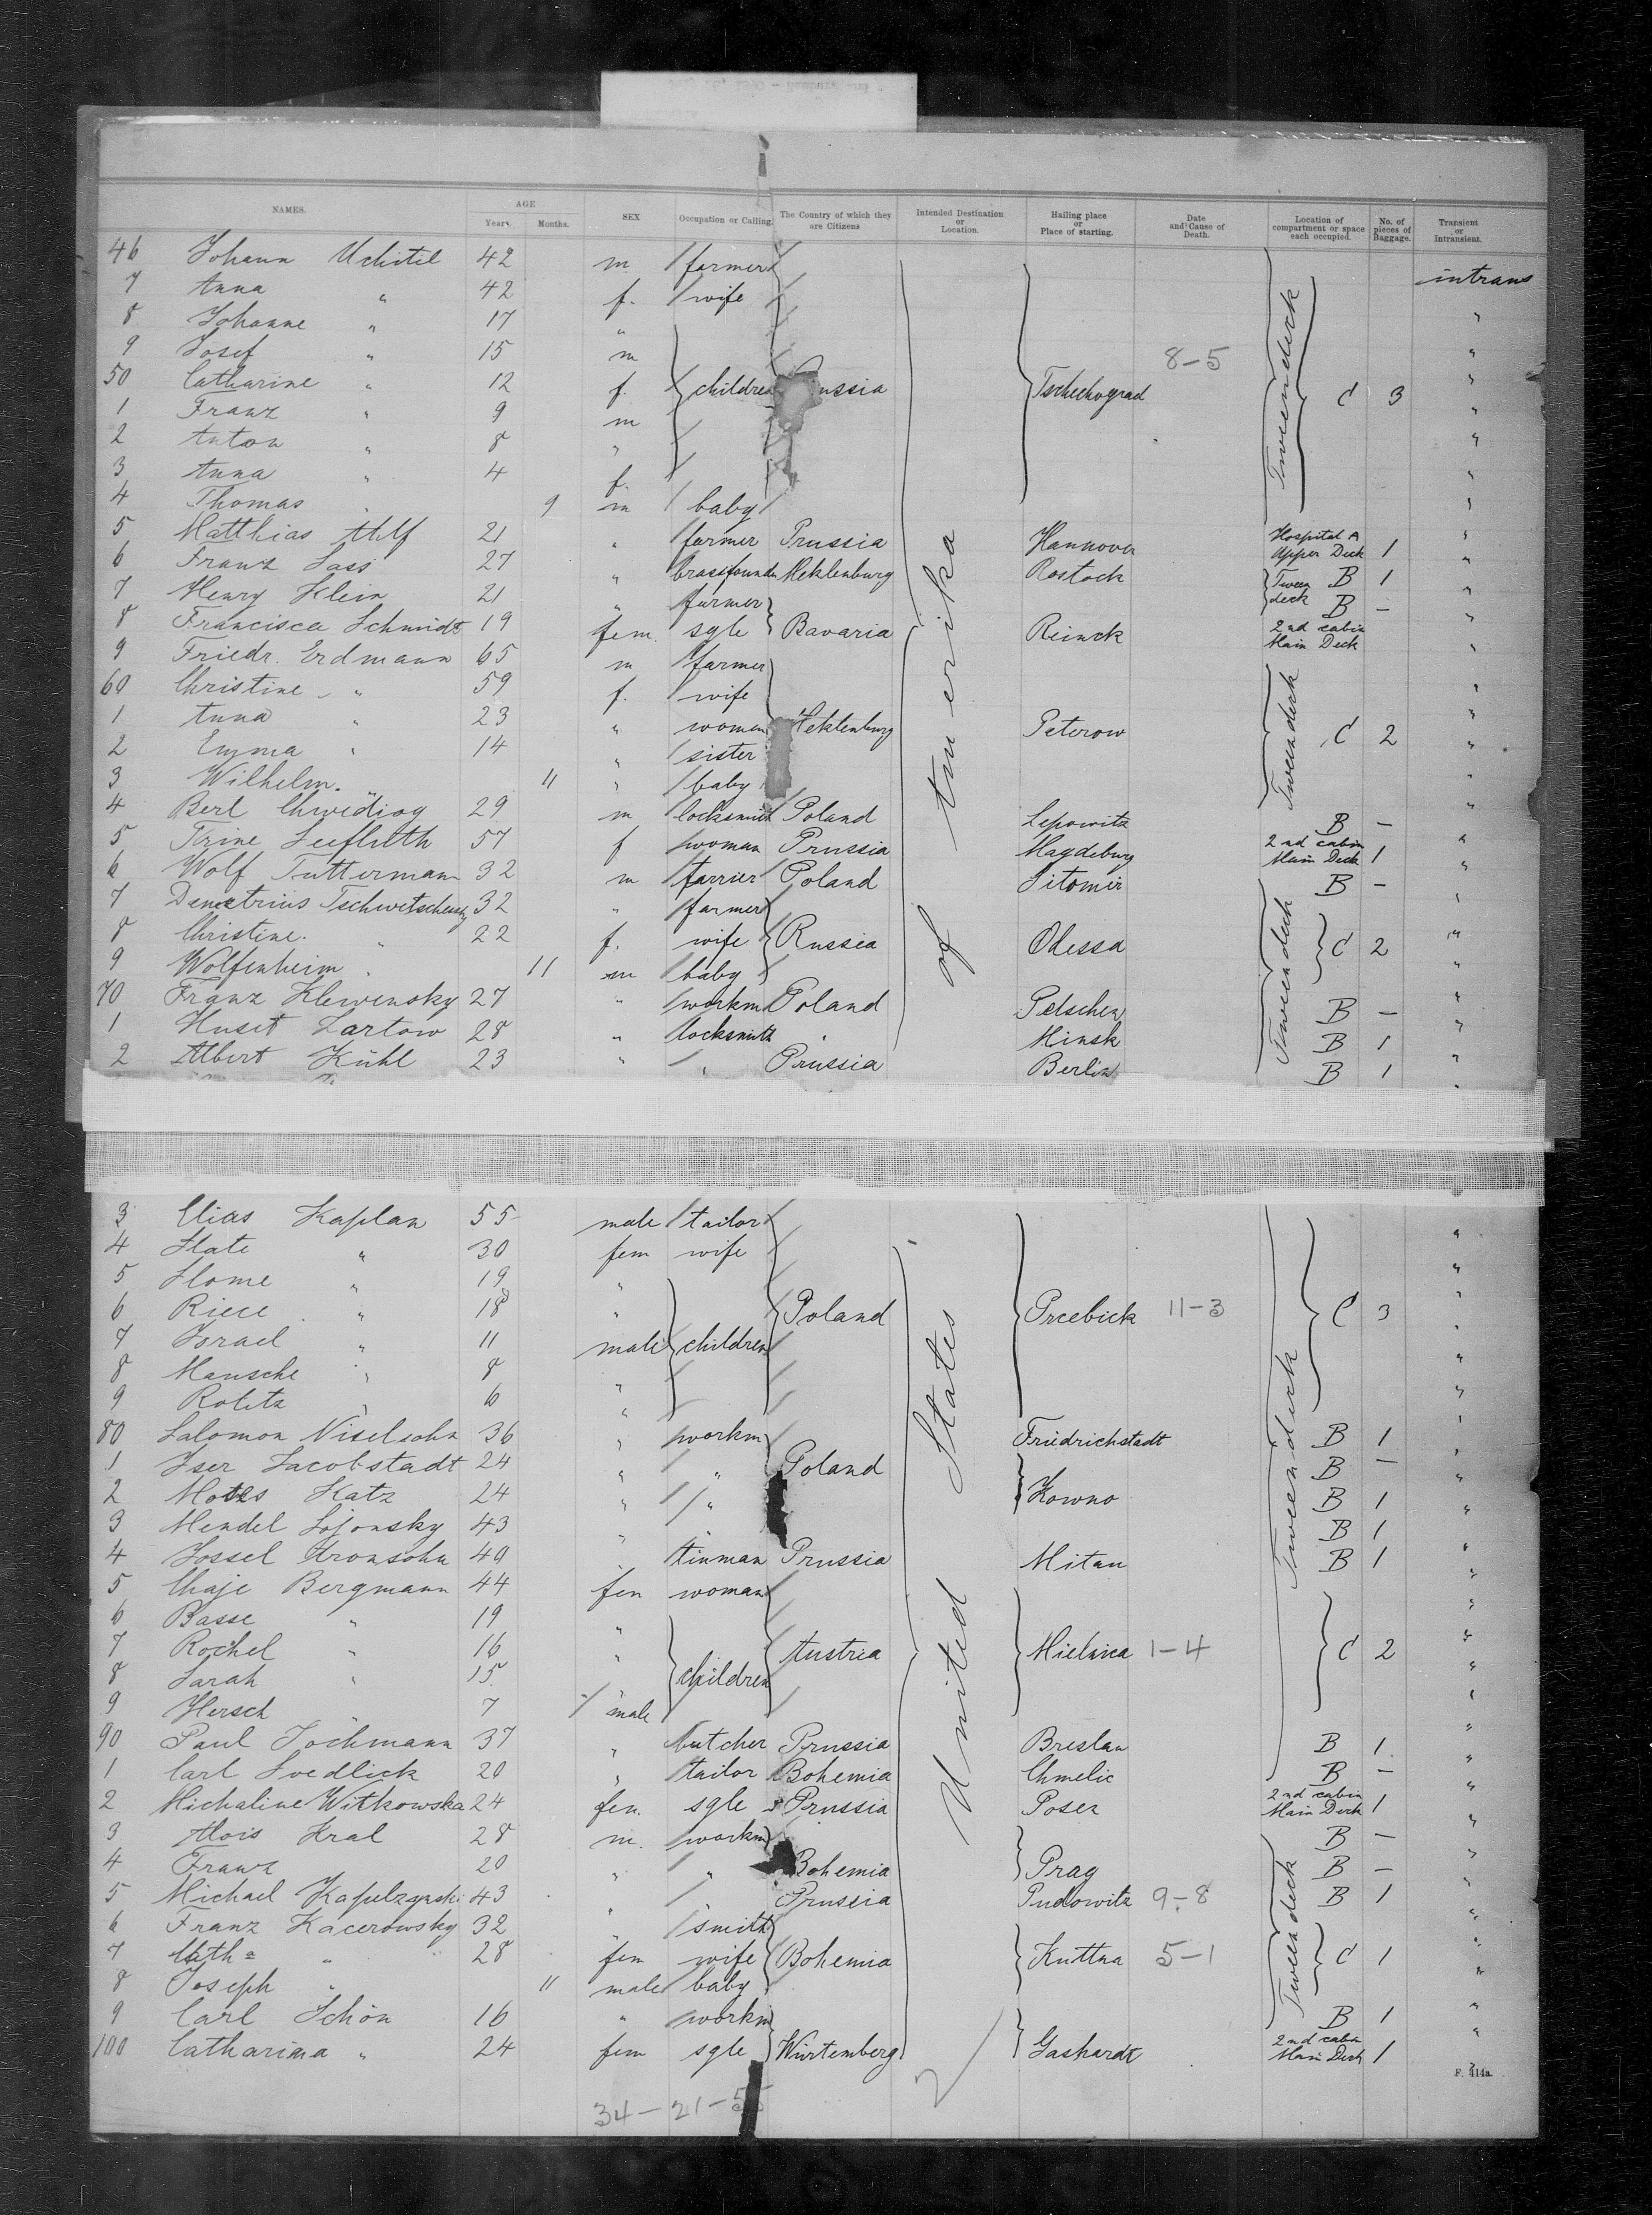 NAMES. AGE Years. Months. SEX Occupation or Calling. The Country of which they are Citizens Intended Destination or Location. Hailing place or Place of starting. Date and Cause of Death. Location of compartment or space each occupied. No. of pieces of Baggage. Transient or Intransient.
46 Johann Uchitil 42 m farmer intrans
7 Anna " 42 f. wife "
8 Johanne " 17 " "
9 Josef " 15 m 8-5 "
50 Catharine " 12 f. children Russia Tschechograd Tweendeck C 3 "
1 Franz " 9 m "
2 Anton " 8 " "
3 Anna " 4 f. "
4 Thomas " 9 m baby "
5 Matthias Ahlf 21 " farmer Prussia Hannover Hospital A Upper Deck 1 "
6 Franz Lass 27 " brassfounder Meklenburg Rostock Tween deck B 1 "
7 Henry Klein 21 " farmer B - "
8 Francisca Schmidt 19 fem. sgle Bavaria Reinck 2nd cabin Main Deck "
9 Friedr. Erdmann 65 m farmer "
60 Christine " 59 f. wife "
1 Anna " 23 " woman Meklenburg Peterow Tweendeck C 2 "
2 Emma " 14 " sister "
3 Wilhelm. " 11 " baby "
4 Berl Chwediog 29 m locksmith Poland Lepowitz B - "
5 Trine 57 f woman Prussia Magdeburg 2nd cabin Main Deck 1 "
6 Wolf Tutterman 32 m farrier Poland Sitomir B - "
7 Demetrius 32 " farmer "
8 Christine. " 22 f. wife Russia Odessa Tweendeck C 2 "
9 Wolfenheim " 11 m baby "
70 Franz Klewensky 27 " workm Poland Petschen B - "
1 Huset Lartow 28 " locksmith " Minsk B 1 "
2 Albert Kühl 23 " " Prussia Berlin B 1 "
of Amerika
3 Elias Kaplan 55 male tailor "
4 Slate " 30 fem wife "
5 Slome " 19 " "
6 Riece " 18 " Poland Preebick 11-3 C 3 "
7 Israel " 11 male children "
8 Mansche " 8 " "
9 Rolitz " 6 " "
80 Salomon Niselsohn 36 " workm Friedrichstadt Tweendeck B 1 "
1 Iser Jacobstadt 24 " " Poland B - "
2 Motes Katz 24 " " Kowno B 1 "
3 Mendel Lojonsky 43 " B 1 "
4 Jossel Aronsohn 49 " tinman Prussia Mitau B 1 "
5 Chaje Bergmann 44 fem woman "
6 Basse " 19 " "
7 Rochel " 16 " Austria Mielnica 1-4 C 2 "
8 Sarah " 15 " children "
9 Hersch " 7 male "
90 Paul Jochmann 37 " butcher Prussia Breslau B 1 "
1 Carl Svedlick 20 " tailor Bohemia Chmelic B - "
2 Michaline Witkowska 24 fem. sgle Prussia Posen 2nd cabin Main Deck 1 "
3 Alois Kral 28 m. workm B - "
4 Franz 20 " " Bohemia Prag B - "
5 Michael 43 " " Prussia Pudowitz 9-8 Tweendeck B 1 "
6 Franz Kacerowsky 32 " smith "
7 Cath= " 28 fem wife Bohemia Kuttna 5-1 C 1 "
8 Joseph " 11 male baby "
9 Carl Schön 16 " workm B 1 "
100 Catharina " 24 fem sgle Würtemberg Gashardt 2nd cabin Main Deck 1 "
United States
F. 414a.
34-21-55